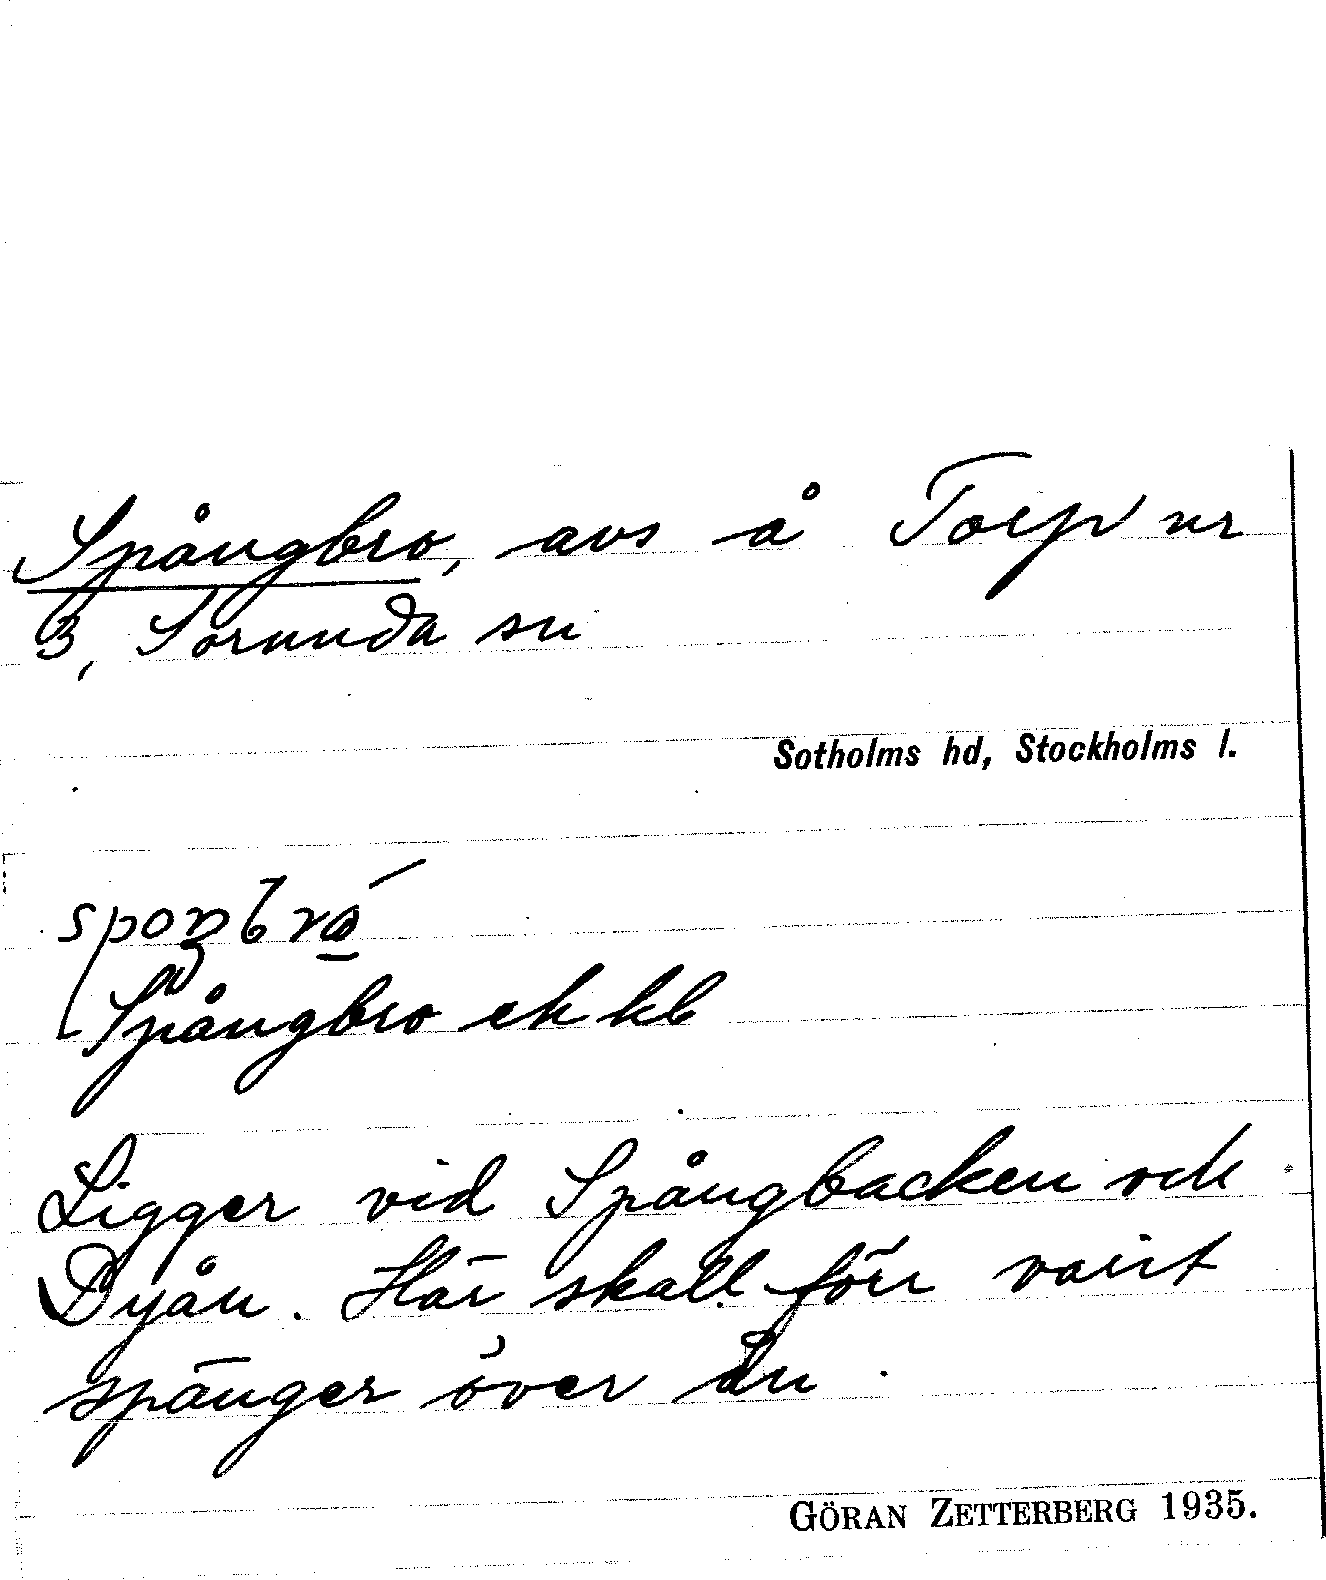 Spångbro, avs å Torp nr
3, Sorunda sn
Sotholms hd, Stockholms l.
Spångbro ek kb
Ligger vid Spångbacken och
Dyån. Här skall förr varit
spänger över ån.
GÖRAN ZETTERBERG 1935.